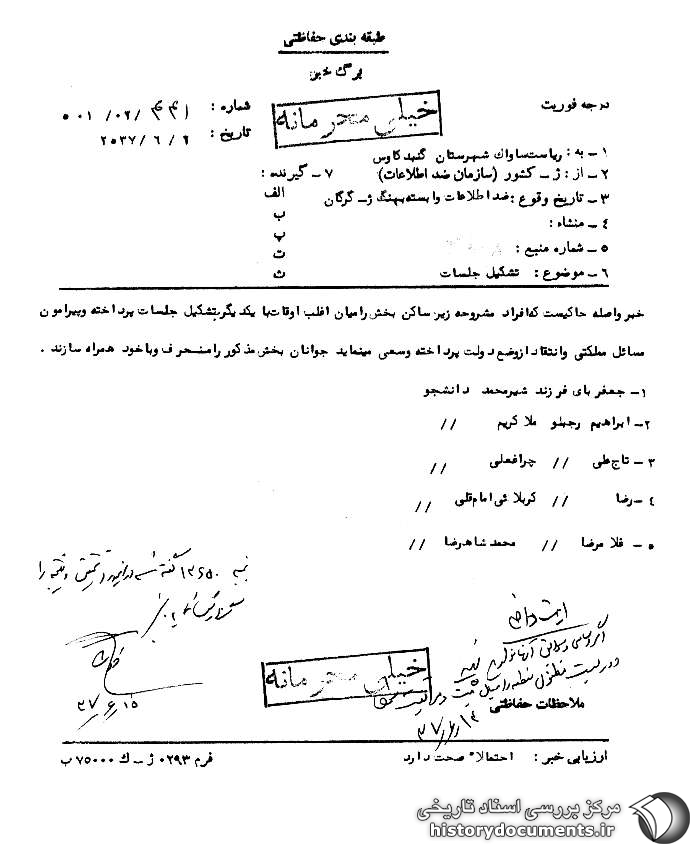 طبقه بندی حفاظتی
برگ خبر
درجه فوریت
خیلی محرمانه
شماره :
تاریخ : ۲۵۳۷/۶/۲
۱ - به : ریاست ساواک شهرستان گنبد کاوس
۲ - از : ژ - کشور (سازمان ضد اطلاعات)
۷ - گیرنده :
۳ - تاریخ وقوع : ضد اطلاعات وابسته بهنگ ژ - گرگان
الف
۴ - منشاء :
ب
۵ - شماره منبع :
پ
ت
۶ - موضوع : تشکیل جلسات
ث
خبر واصله حاکیست که افراد مشروحه زیر ساکن بخش رامیان اغلب اوقات با یکدیگر تشکیل جلسات پرداخته و پیرامون
مسائل مملکتی و انتقاد از وضع دولت پرداخته و سعی مینماید جوانان بخش مذکور را منحرف و با خود همراه سازند .
۱ - جعفربای فرزند شیرمحمد دانشجو
۲ - ابراهیم رجبلو ملاکریم //
۳ - تاج علی // چراغعلی //
۴ - رضا // کربلائی امامقلی //
۵ - غلامرضا // محمد شاهرضا //
۳۷/۶/۱۵
خیلی محرمانه
ملاحظات حفاظتی
ارزیابی خبر : احتمالا صحت دارد
فرم ۰۲۹۳ ژ - ک ۷۵۰۰۰ ب
مرکز بررسی اسناد تاریخی
historydocuments.ir